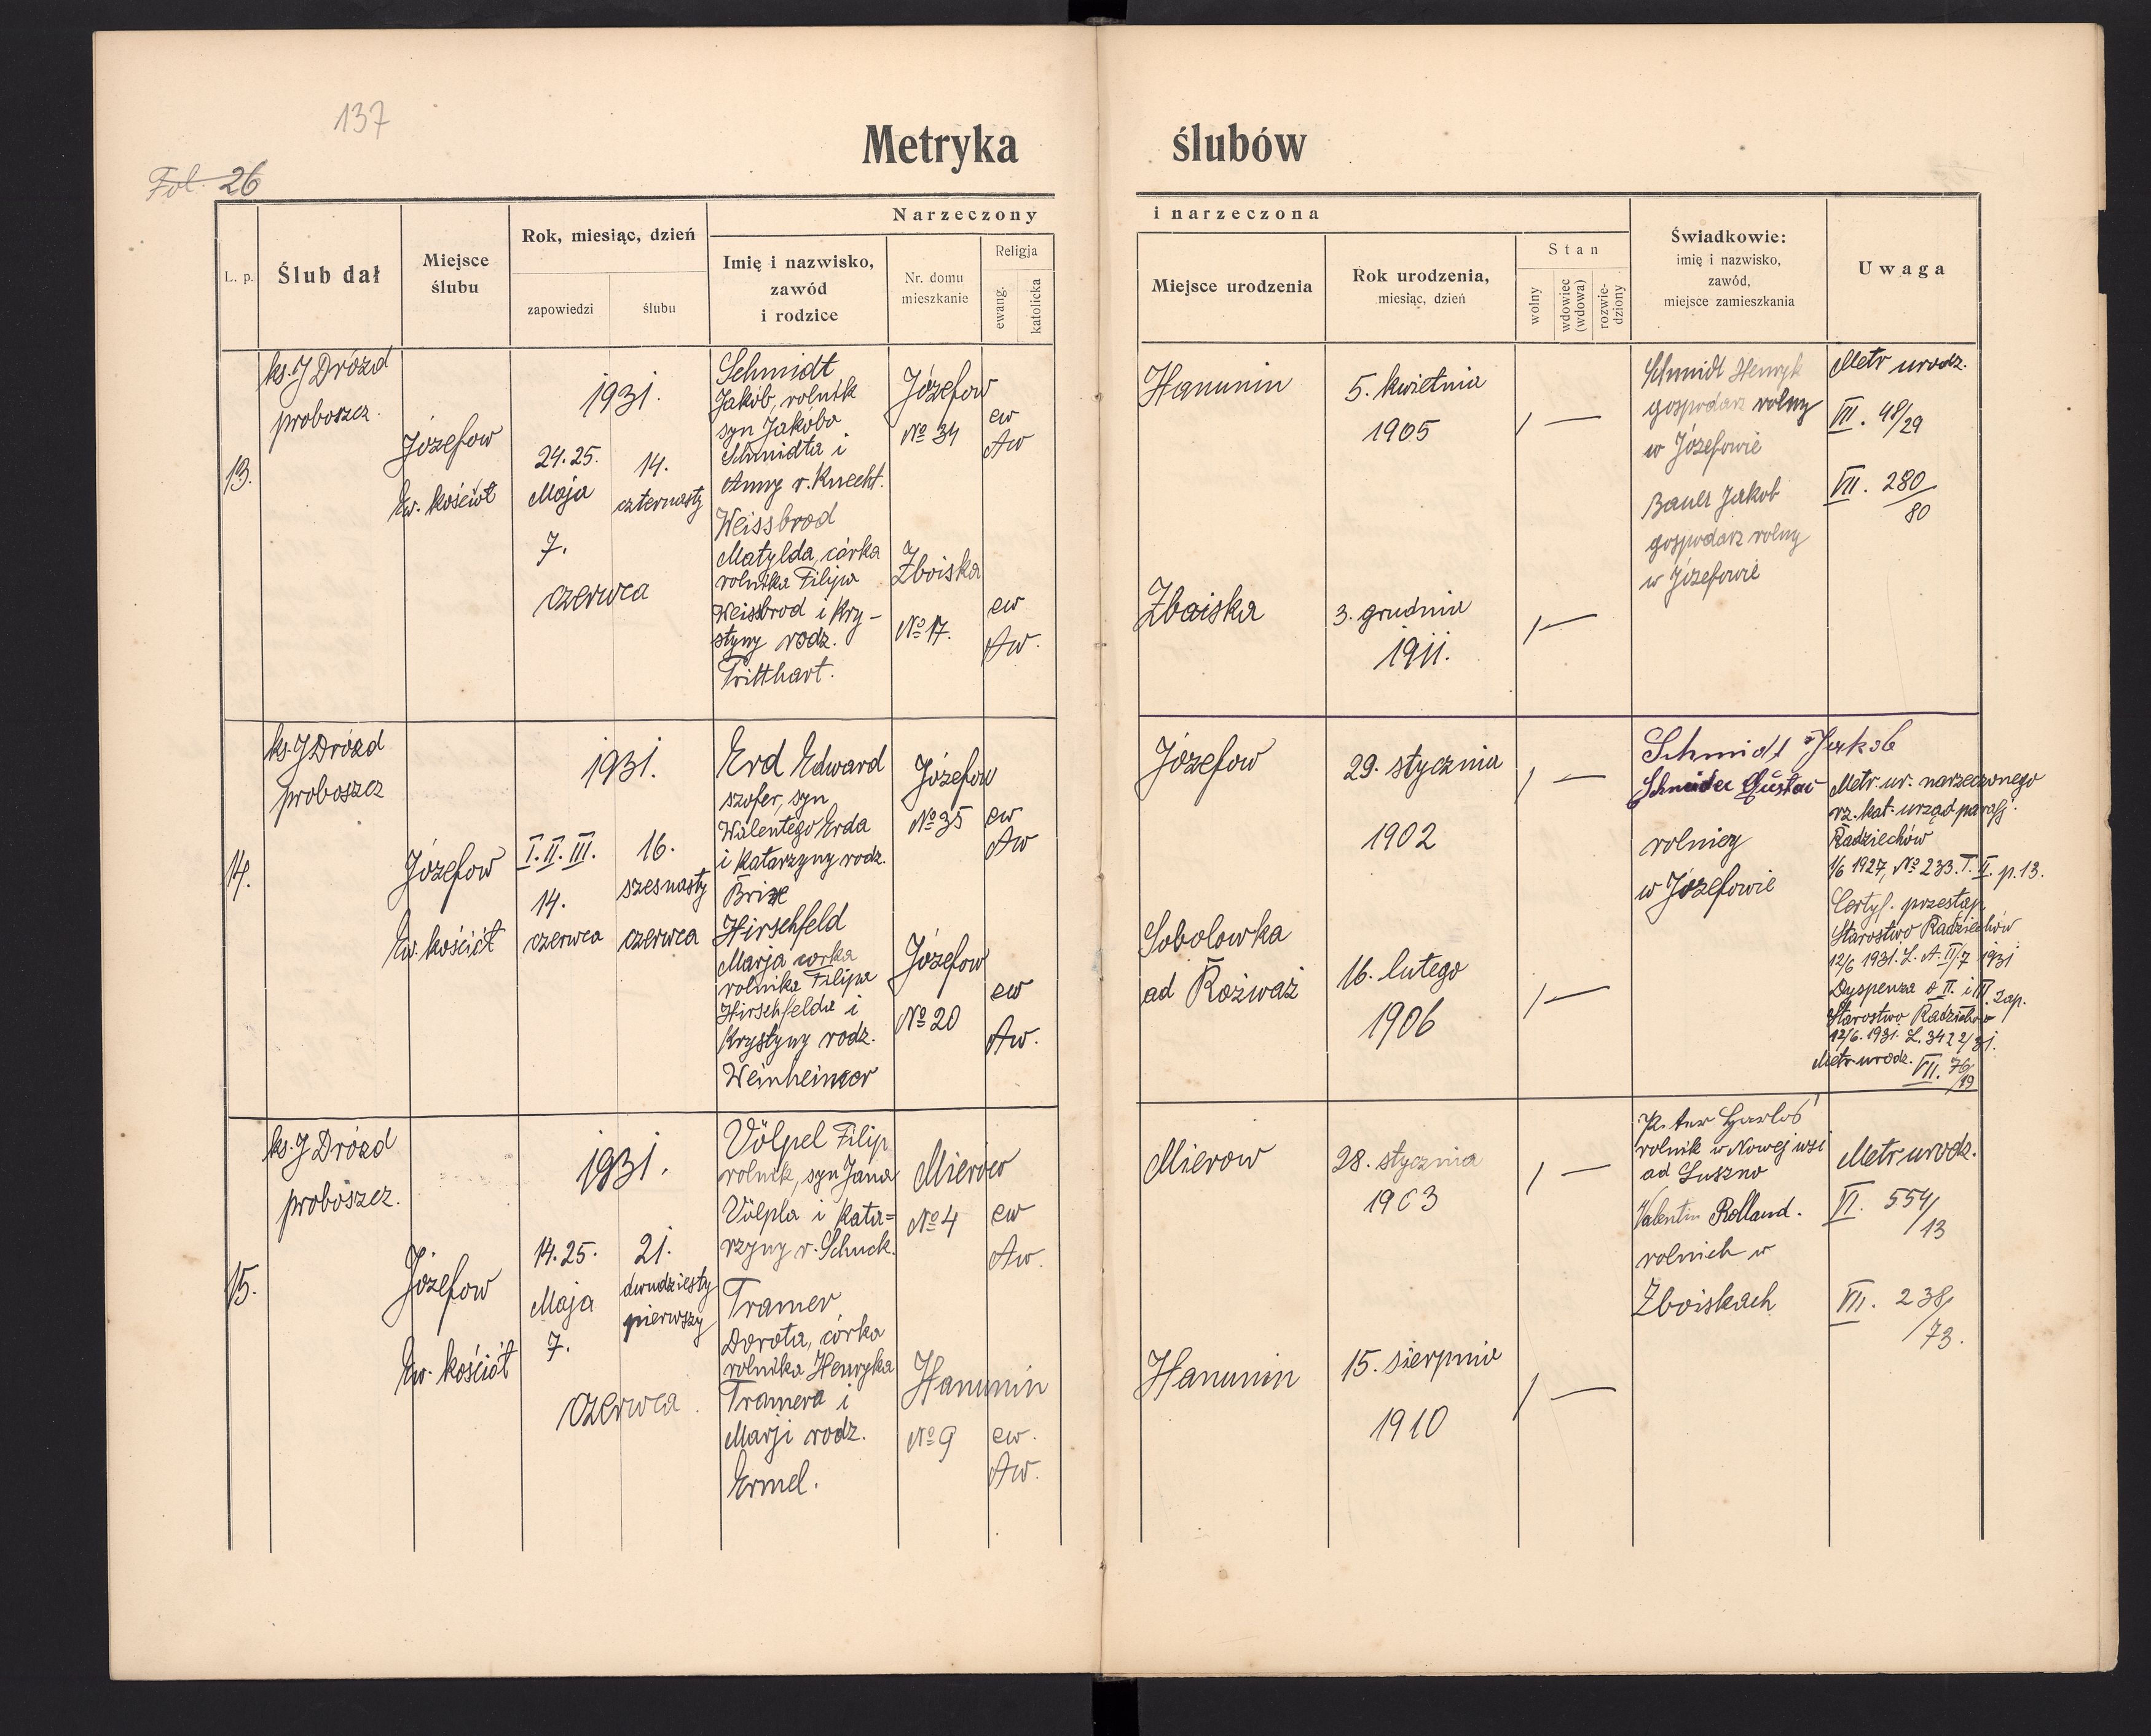 137
Metryka ślubów
Fol. 26
Narzeczony
i narzeczona
L. p.
Ślub dał
Miejsce
ślubu
Rok, miesiąc, dzień
zapowiedzi
ślubu
Imię i nazwisko,
zawód
i rodzice
Nr. domu
mieszkanie
Religja
ewang.
katolicka
Miejsce urodzenia
Rok urodzenia,
miesiąc, dzień
Stan
wolny
wdowiec
(wdowa)
rozwie-
dziony
Świadkowie:
imię i nazwisko,
zawód,
miejsce zamieszkania
Uwaga
13.
ks. J Drózd
proboszcz.
Józefow
Ew. kościół
1931.
24. 25.
Maja
7.
czerwca
14.
czternasty
Schmidt
Jakób, rolnik
syn Jakóba
Schmidta i
Anny r. Knecht.
Weissbrod
Matylda, córka
rolnika Filipa
Weissbrod i Kry-
styny rodz.
Tritthart.
Józefow
№ 34
Zboiska
№ 17.
ew
Aw
ew
Aw.
Hanunin
5. kwietnia
1905
Zboiska
3. grudnia
1911.
Schmidt Henryk
gospodarz rolny
w Józefowie
Bauer Jakob
gospodarz rolny
w Józefowie
Metr urodz.
VII. 48/29
VII. 280/80
14.
ks. J Drózd
proboszcz
Józefow
Ew. kościół
1931.
I. II. III.
14.
czerwca
16.
szesnasty
czerwca
Erd Edward
szofer, syn
Walentego Erda
i Katarzyny rodz.
Hirschfeld
Marja corka
rolnika Filipa
Hirschfelda i
Krystyny rodz.
Weinheimer
Józefow
№ 35
Józefow
№ 20
ew
Aw
ew
Aw.
Józefow
29. stycznia
1902
Sobolowka
ad Rożważ
16. lutego
1906
Schmidt Jakob
Schneider Gustav
rolnicy
w Józefowie
Metr. ur. narzeczonego
rz. kat. urząd parafj.
Radziechów
1/6 1927, № 233. T. II. p. 13.
Certyf. przestąp.
Starostwo Radziechów
12/6 1931. L. A. II/7 1931
Dyspenza o II. i III. zap.
Starostwo Radziechow
12/6. 1931. L. 3422/31.
Metr. urodz. VII. 76/19
15.
ks. J Drózd
proboszcz.
Józefow
Ew. kościół
1931.
14. 25.
Maja
7.
czerwca.
21.
dwudziesty
pierwszy
Völpel Filip
rolnik, syn Jana
Völpla i Kata=
rzyny r. Schuck.
Tramer
Dorota, córka
rolnika Henryka
Tramera i
Marji rodz.
Ermel.
Mierow
№ 4
Hanunin
№ 9
ew
Aw.
ew.
Aw.
Mierow
28. stycznia
1903
Hanunin
15. sierpnia
1910
rolnik w Nowej wsi
ad Suszno
Valentin Rolland.
rolnich w
Zboiskach
Metr urodz.
VI. 554/13
VII. 238/73.